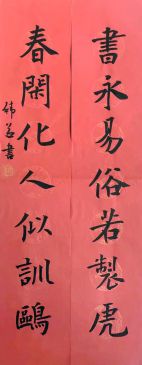 書永易俗若製虎
春閑化人似訓鷗
書